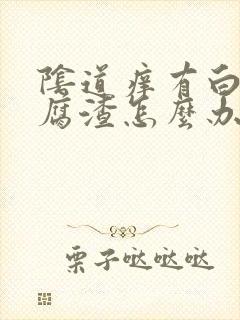 陰道痒有白
腐渣怎麼办
栗子哒哒哒